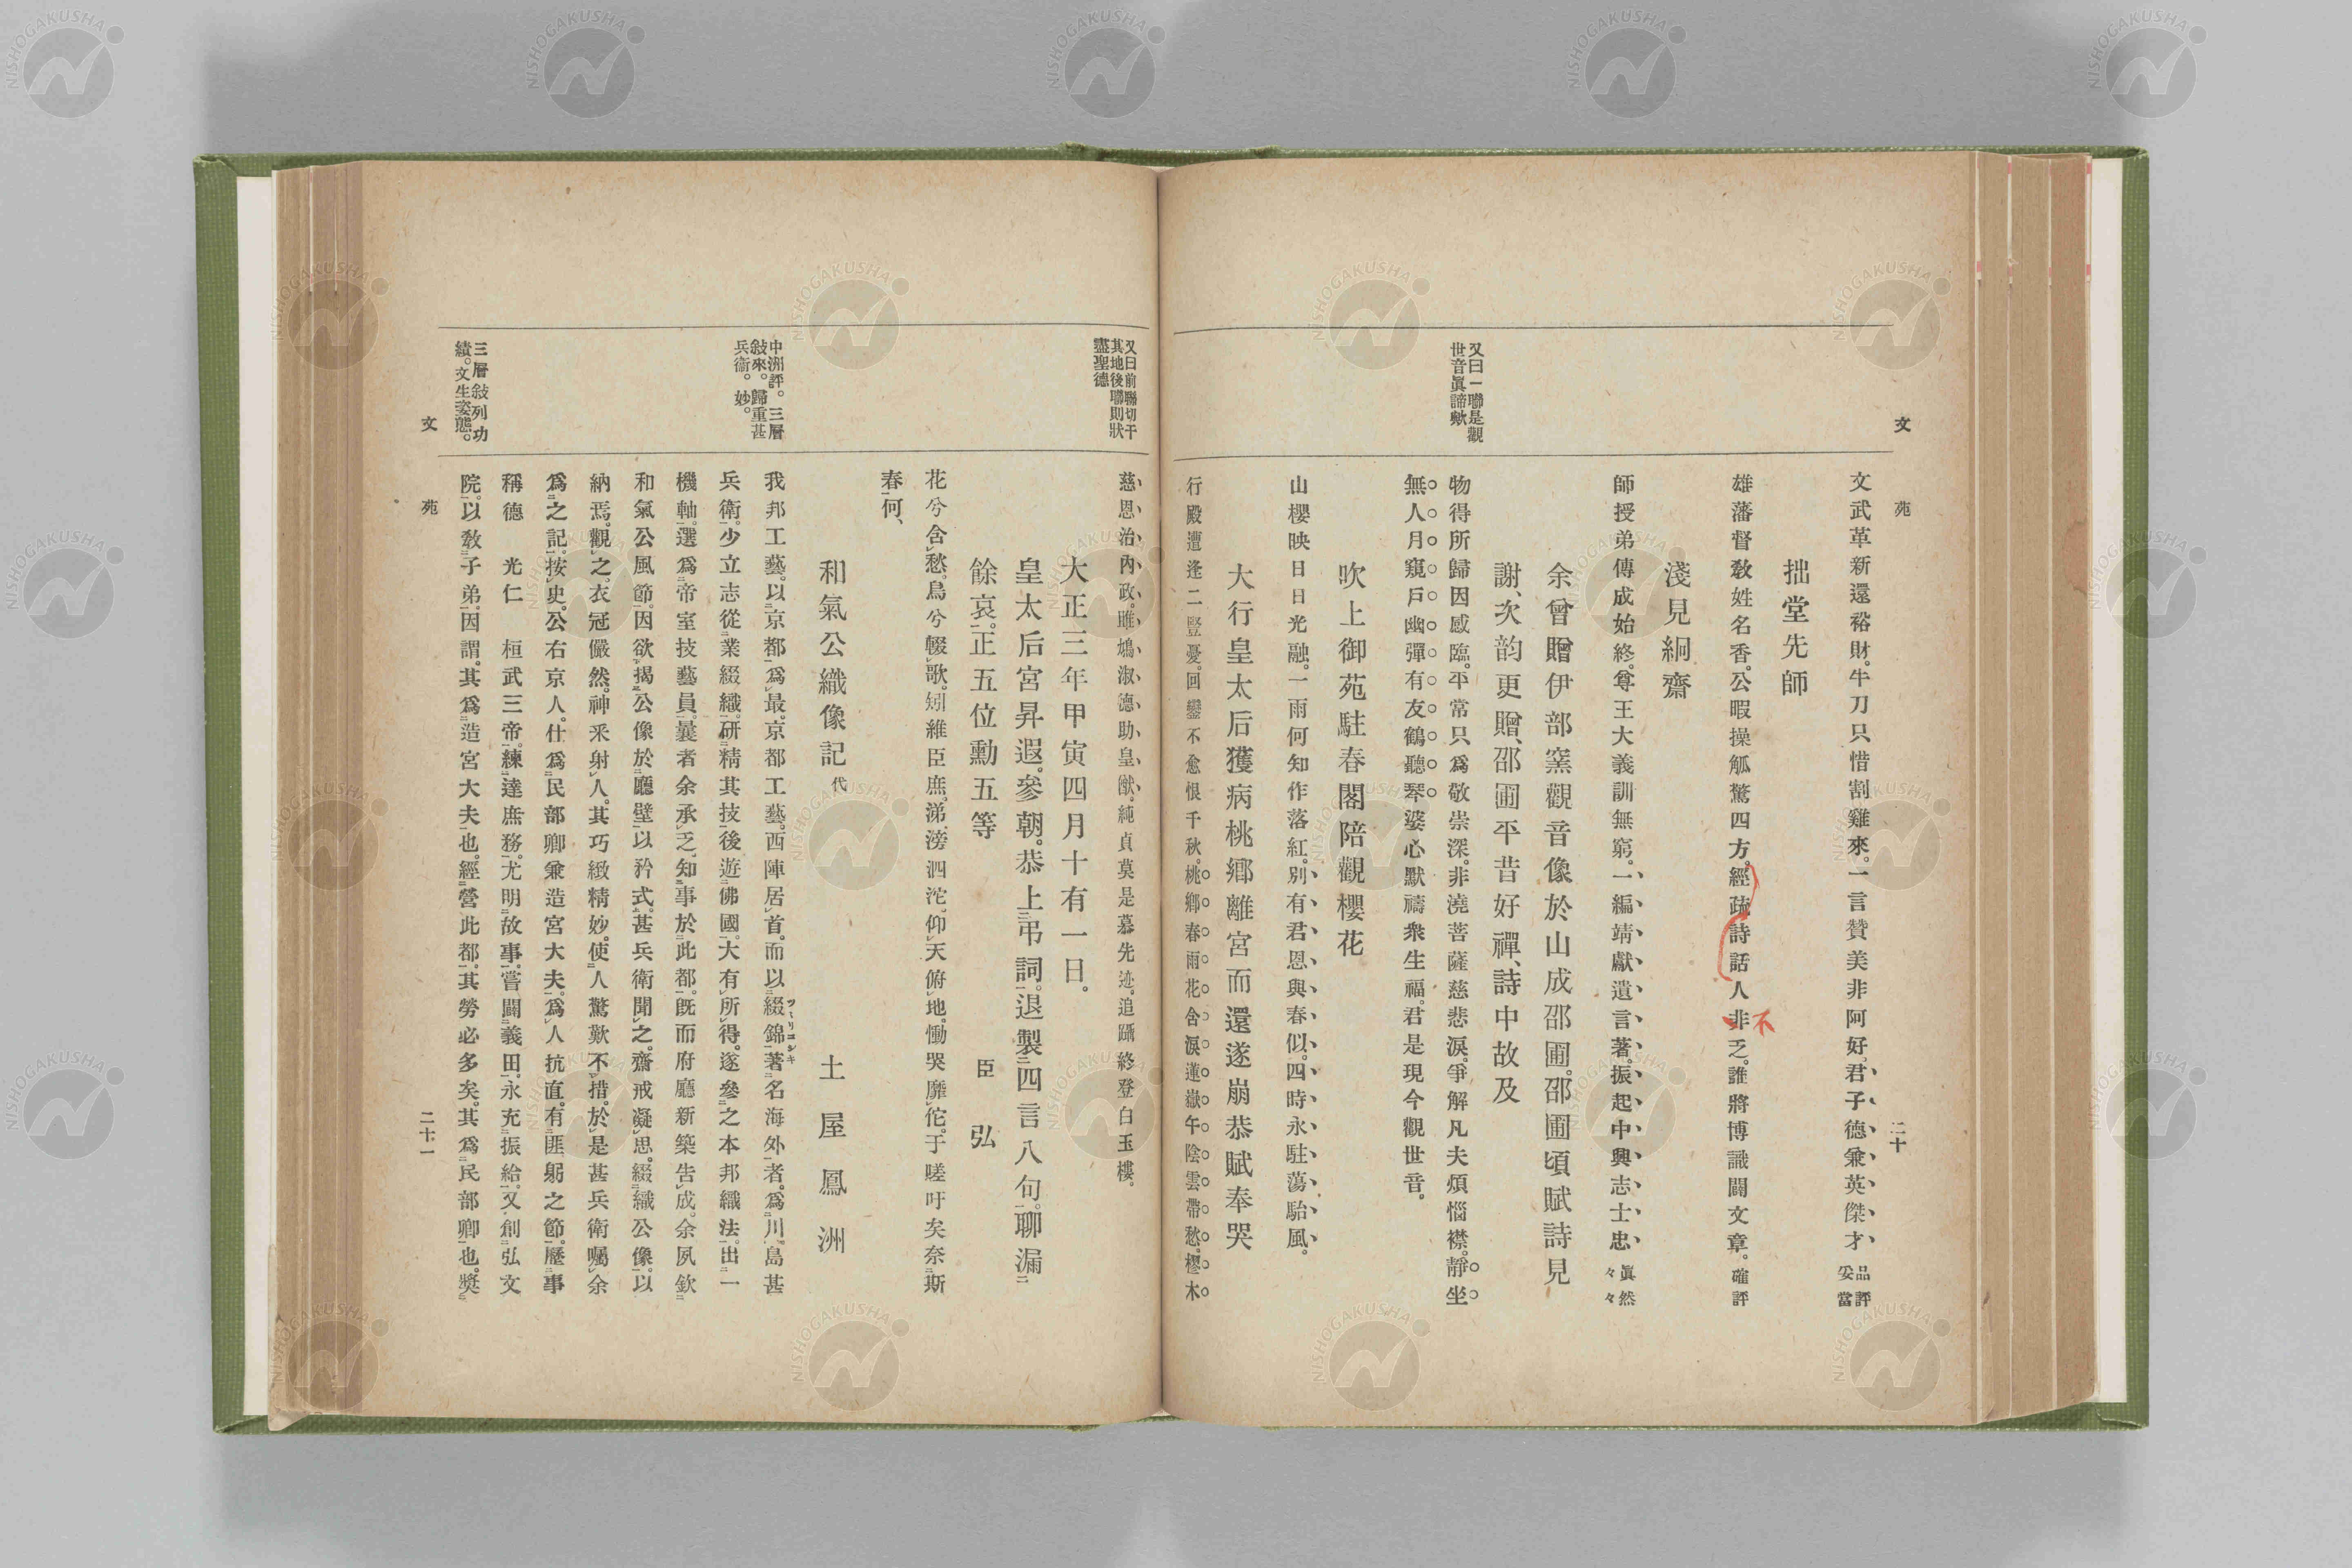 文苑
二十
文武革新還裕財。牛刀只惜割雞來。一言贊美非阿好。君子德兼英傑才 品評妥當
拙堂先師
雄藩督敎姓名香。公暇操觚驚四方。經疏詩話人非乏。誰將博識闘文章。 確評
不
淺見絅齋
師授弟傳成始終。尊王大義訓無窮。一編靖獻遺言著。振起中興志士忠。 眞然々々
余曾贈伊部窯觀音像於山成邵圃。邵圃頃賦詩見
謝、次韵更贈、邵圃平昔好禪、詩中故及
又曰一聯是觀
世音眞諦歟
物得所歸因感臨。平常只爲敬崇深。非澆菩薩慈悲淚。爭解凡夫煩惱襟。靜坐
無人月窺戶幽彈有友鶴聽琴婆心默禱衆生福。君是現今觀世音。
吹上御苑駐春閣陪觀櫻花
山櫻映日日光融。一雨何知作落紅。別有君恩與春似。四時永駐蕩駘風。
大行皇太后獲病桃鄕離宮而還遂崩恭賦奉哭
行殿遭逢二豎憂。回鑾不愈恨千秋。桃鄕春雨花含淚蓮嶽午陰雲帶愁。樛木
又曰前聯切干
其地後聯則狀
盡聖德
慈恩治內政。雎鳩淑德助皇猷。純貞莫是慕先迹。追躡終登白玉樓。
大正三年甲寅四月十有一日。
皇太后宮昇遐。參朝。恭上弔詞。退製四言八句。聊漏
餘哀。正五位勳五等 臣 弘
花兮含愁。鳥兮輟歌。矧維臣庶。涕滂泗沱。仰天俯地。慟哭靡佗。于嗟吁矣奈斯
春何、
和氣公織像記 代 土屋鳳洲
中洲評。三層
敍來。歸重甚
兵衞。妙。
我邦工藝。以京都爲最。京都工藝。西陣居首。而以綴錦著名海外者。爲川島甚
ツヾリニシキ
兵衞。少立志從業綴織。研精其技後遊佛國。大有所得。遂參之本邦織法。出一
機軸。選爲帝室技藝員。曩者余承乏知事於此都。既而府廳新築吿成。余夙欽
和氣公風節。因欲揭公像於廳壁以矜式。甚兵衞聞之。齋戒凝思。綴織公像。以
納焉。觀之衣冠儼然。神釆射人。其巧緻精妙。使人驚歎不措。於是甚兵衞囑余
爲之記。按史。公右京人。仕爲民部卿兼造宮大夫。爲人抗直。有匪躬之節。歷事
稱德 光仁 桓武三帝。練達庶務。尤明故事。嘗闢義田。永充振給。又創弘文
三層敍列功
績。文生姿態。
院。以敎子弟。因謂。其爲造宮大夫也。經營此都。其勞必多矣。其爲民部卿也。奬
文苑
二十一